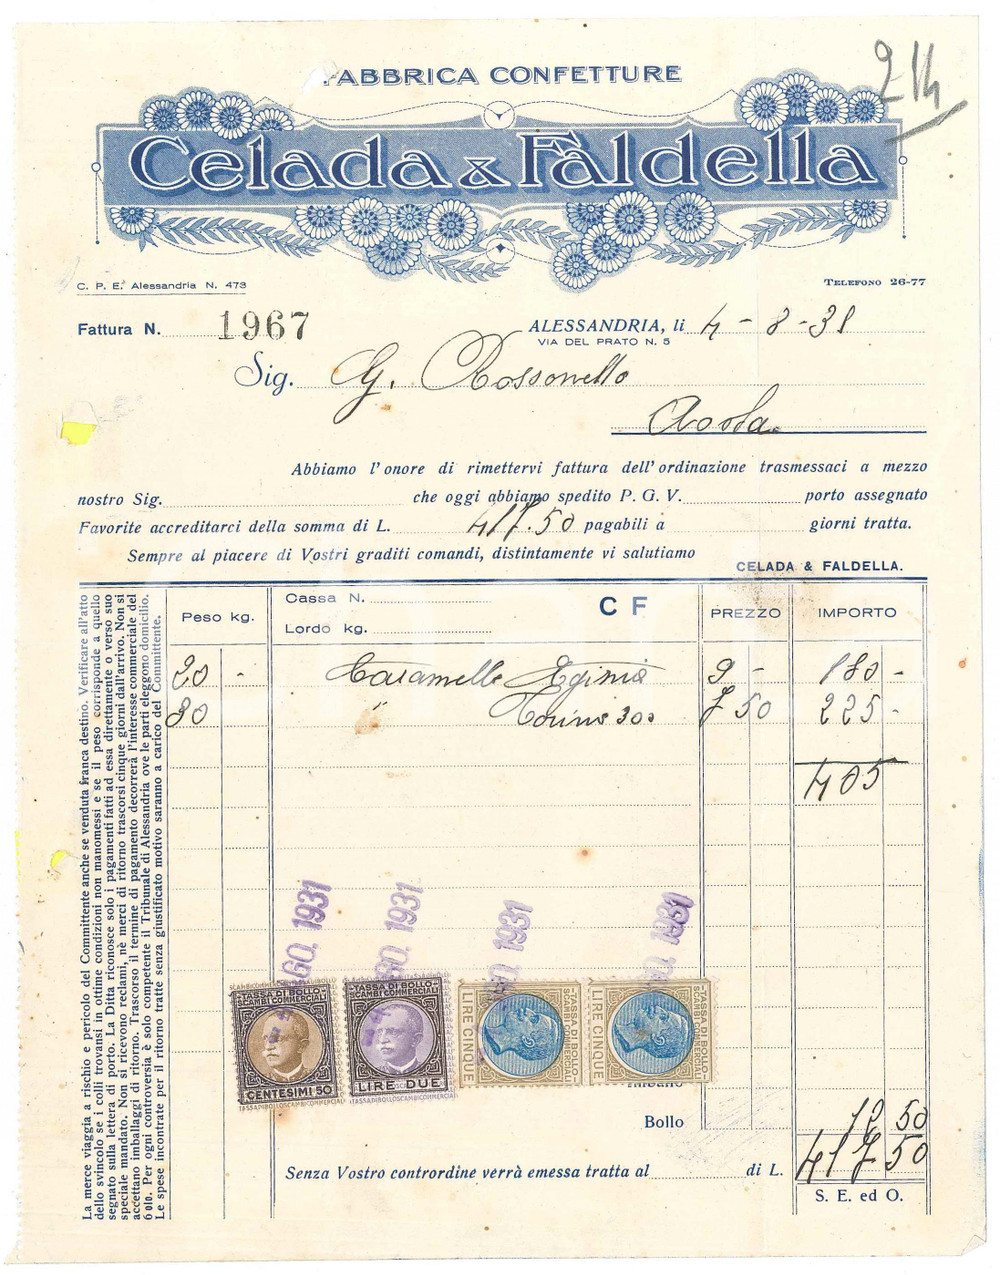 214
FABBRICA CONFETTURE
Celada & Faldella
C. P. E. Alessandria N. 473
TELEFONO 26-77
Fattura N. 1967
ALESSANDRIA, li 4 - 8 - 31
VIA DEL PRATO N. 5
Sig. G. Rossonello
Aosta
Abbiamo l'onore di rimettervi fattura dell'ordinazione trasmessaci a mezzo
nostro Sig. che oggi abbiamo spedito P. G. V. porto assegnato
Favorite accreditarci della somma di L. 417.50 pagabili a giorni tratta.
Sempre al piacere di Vostri graditi comandi, distintamente vi salutiamo
CELADA & FALDELLA.
Peso kg.
Cassa N.
Lordo kg.
C F
PREZZO
IMPORTO
20 - Caramelle 9 - 180 -
30 " Torino 300 7 50 225 -
405
La merce viaggia a rischio e pericolo del Committente anche se venduta franca destino. Verificare all'atto
dello svincolo se i colli trovansi in ottime condizioni non manomessi e se il peso corrisponde a quello
segnato sulla lettera di porto. La Ditta riconosce solo i pagamenti fatti ad essa direttamente o verso suo
speciale mandato. Non si ricevono reclami, nè merci di ritorno trascorsi cinque giorni dall'arrivo. Non si
accettano imballaggi di ritorno. Trascorso il termine di pagamento decorrerà l'interesse commerciale del
6 0/0. Per ogni controversia è solo competente il Tribunale di Alessandria ove le parti eleggono domicilio.
Le spese incontrate per il ritorno tratte senza giustificato motivo saranno a carico del Committente.
GO. 1931
GO. 1931
O. 1931
O. 1931
TASSA DI BOLLO
SCAMBI COMMERCIALI
CENTESIMI 50
TASSA DI BOLLO
SCAMBI COMMERCIALI
LIRE DUE
TASSA DI BOLLO
SCAMBI COMMERCIALI
LIRE CINQUE
TASSA DI BOLLO
SCAMBI COMMERCIALI
LIRE CINQUE
Bollo 12 50
417 50
Senza Vostro contrordine verrà emessa tratta al di L.
S. E. ed O.